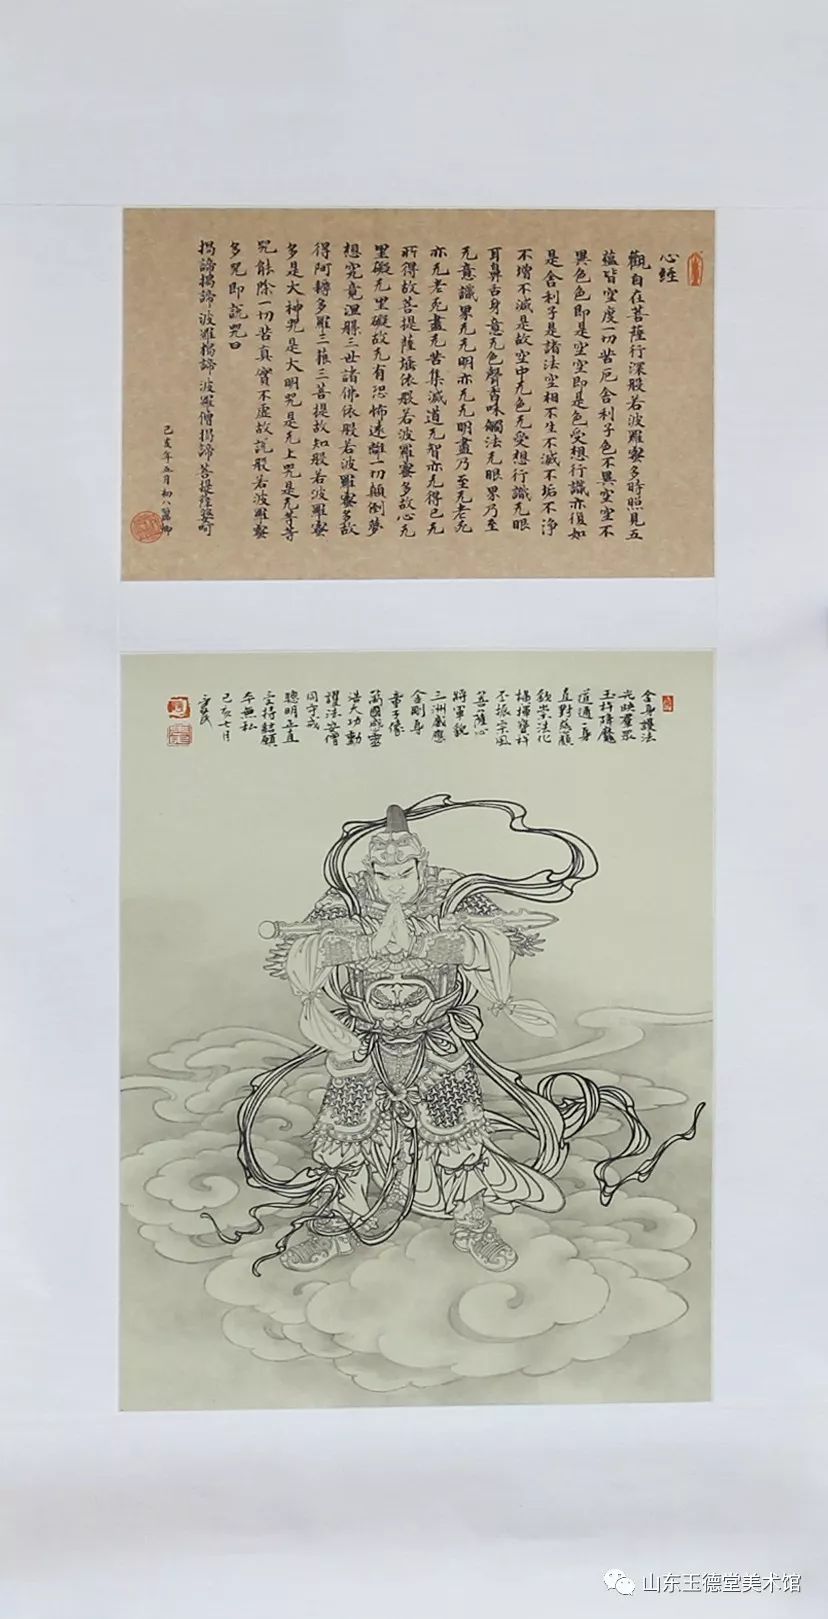 心經
觀自在菩薩行深般若波羅蜜多時照見五
蘊皆空度一切苦厄舍利子色不異空空不
異色色即是空空即是色受想行識亦復如
是舍利子是諸法空相不生不滅不垢不淨
不增不減是故空中无色无受想行識无眼
耳鼻舌身意无色聲香味觸法无眼界乃至
无意識界无无明亦无无明盡乃至无老死
亦无老死盡无苦集滅道无智亦无得已无
所得故菩提薩埵依般若波羅蜜多故心无
罣礙无罣礙故无有恐怖遠離一切顛倒夢
想究竟涅槃三世諸佛依般若波羅蜜多故
得阿耨多羅三藐三菩提故知般若波羅蜜
多是大神咒是大明咒是无上咒是无等等
咒能除一切苦真實不虛故說般若波羅蜜
多咒即說咒曰
揭諦揭諦波羅揭諦波羅僧揭諦菩提薩婆呵
己亥年五月初八
金身護法
光映羣眾
玉杵降魔
道通一身
直對慈顏
欽崇法化
橫擔寶杵
丕振宗風
菩薩心
將軍貌
三洲感應
金剛身
童子像
萬國照靈
浩大功勳
護法安僧
同守戒
聰明正直
受持誌願
本無私
己亥七月
山东玉德堂美术馆